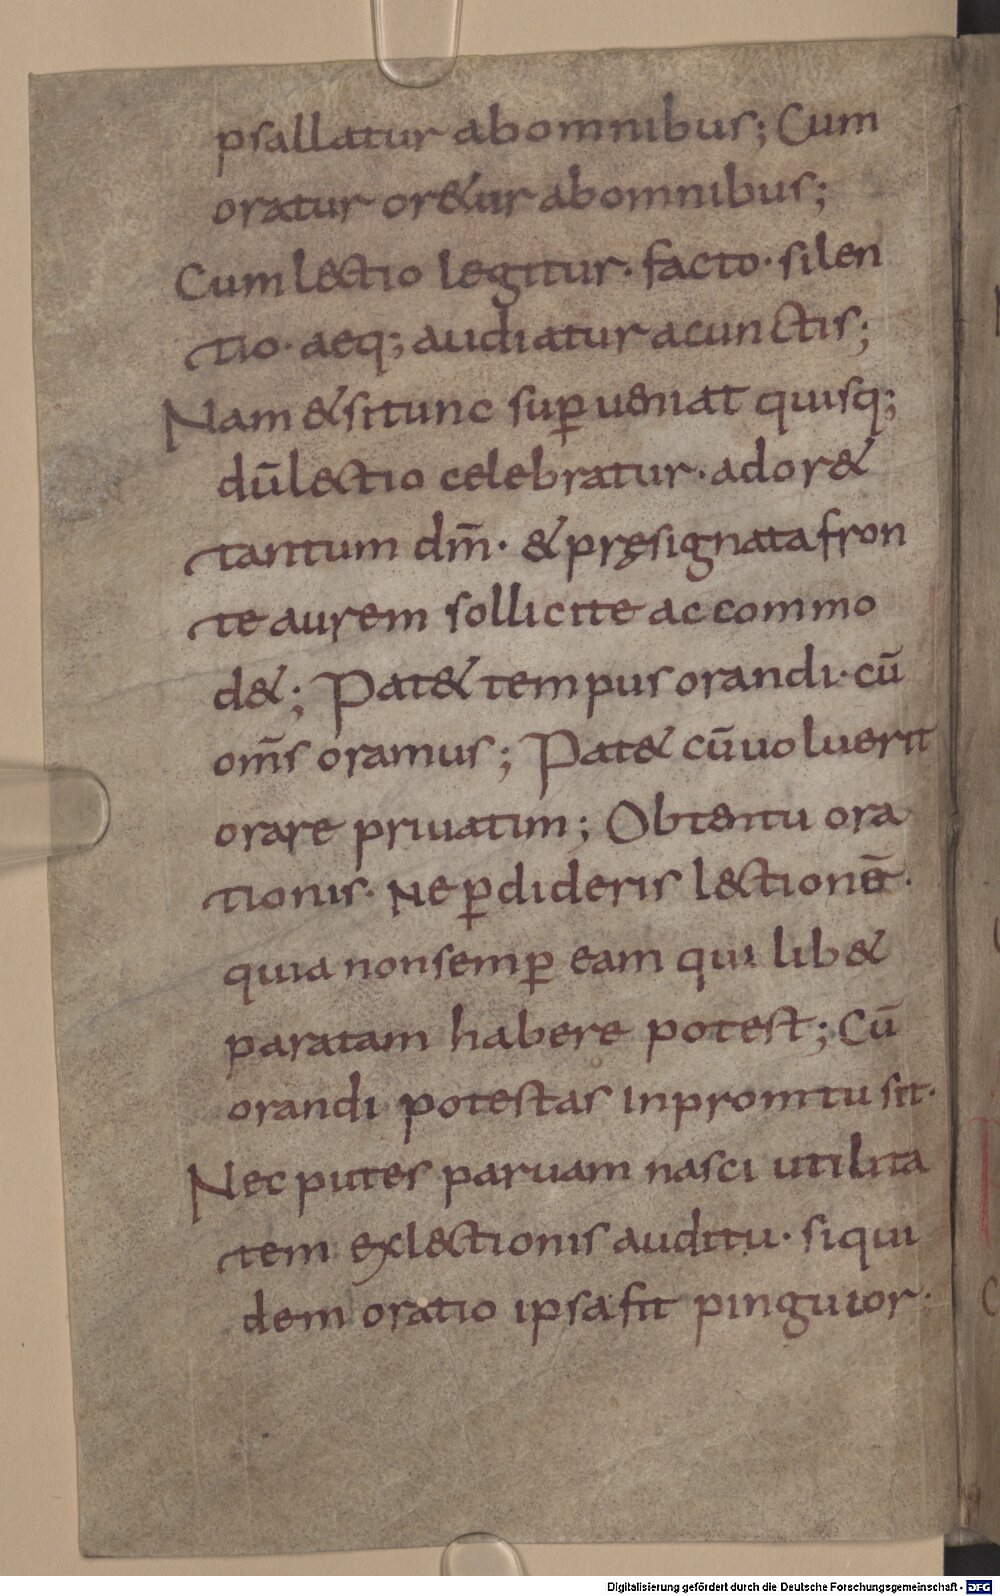 psallatur abomnibus; Cum
oratur or&ur abomnibus;
Cum lectio legitur· facto· silen
tio· aeq; audiatur acunctis;
Nam &si tunc sup̱ueniat quisq;
dū lectio celebratur· ador&
tantum dm̄· & pręsignata fron
te aurem sollicite accommo
d&; Pat& tempus orandi· cū
om̄s oramus; Pat& cū uoluerit
orare priuatim; Obtentu ora
tionis· Ne p̱dideris lectionē·
quia non semp̱ eam qui lib&
paratam habere potest; Cū
orandi potestas inpromtu sit·
Nec putes paruam nasci utilita
tem exlectionis auditu· siqui
dem oratio ipsa fit pinguior·
Digitalisierung gefördert durch die Deutsche Forschungsgemeinschaft - DFG